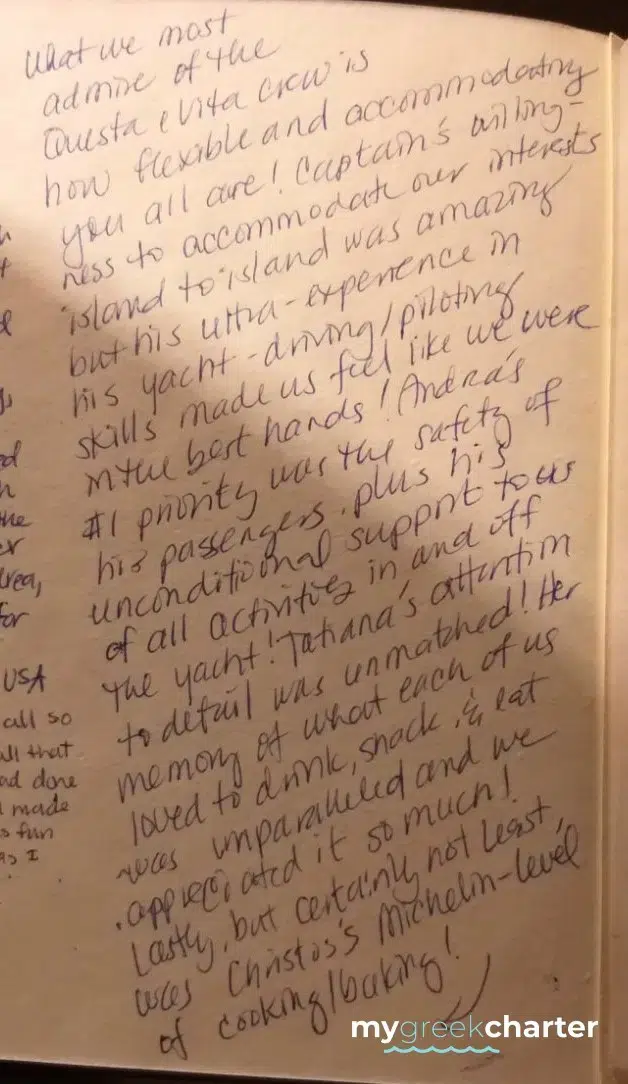 What we most
admire of the
Questa e Vita crew is
how flexible and accommodating
you all are! Captain's willing-
ness to accommodate our interests
island to island was amazing
but his ultra-experience in
his yacht-driving/piloting
skills made us feel like we were
in the best hands! Andrea's
#1 priority was the safety of
his passengers, plus his
unconditional support to us
of all activities in and off
the yacht! Tatiana's attention
to detail was unmatched! Her
memory of what each of us
loved to drink, snack, & eat
was unparalleled and we
appreciated it so much!
Lastly, but certainly not least,
was Christos's Michelin-level
of cooking/baking!
the
area,
for
USA
all so
all that
done
made
fun
as I
mygreekcharter